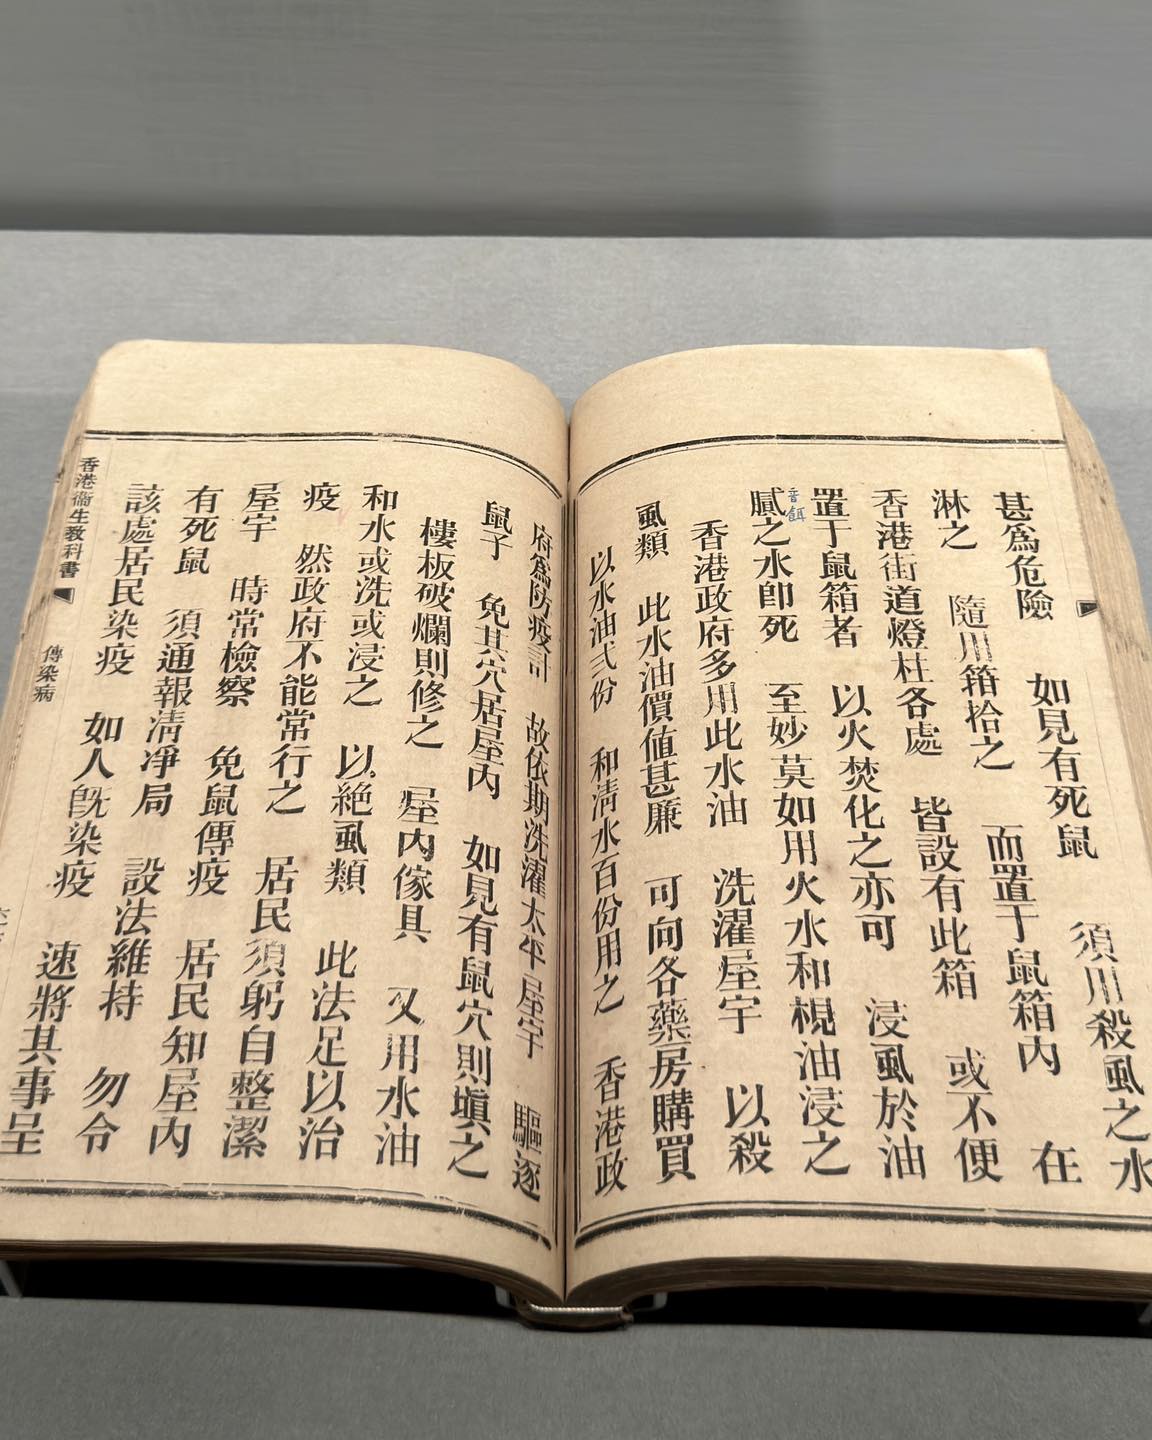 甚爲危險 如見有死鼠 須用殺虱之水
淋之 隨用箝拾之 而置于鼠箱内 在
香港街道燈柱各處 皆設有此箱 或不便
置于鼠箱者 以火焚化之亦可 浸虱於油
膩之水卽死 至妙莫如用火水和梘油浸之
音餌
香港政府多用此水油 洗濯屋宇 以殺
虱類 此水油價値甚廉 可向各藥房購買
以水油弍份 和淸水百份用之 香港政
府爲防疫計 故依期洗濯太平屋宇 驅逐
鼠子 免其穴居屋内 如見有鼠穴則塡之
樓板破爛則修之 屋内傢具 又用水油
和水或洗或浸之 以絶虱類 此法足以治
疫 然政府不能常行之 居民須躬自整潔
屋宇 時常檢察 免鼠傳疫 居民知屋内
有死鼠 須通報淸凈局 設法維持 勿令
該處居民染疫 如人旣染疫 速將其事呈
香港衞生教科書 傳染病